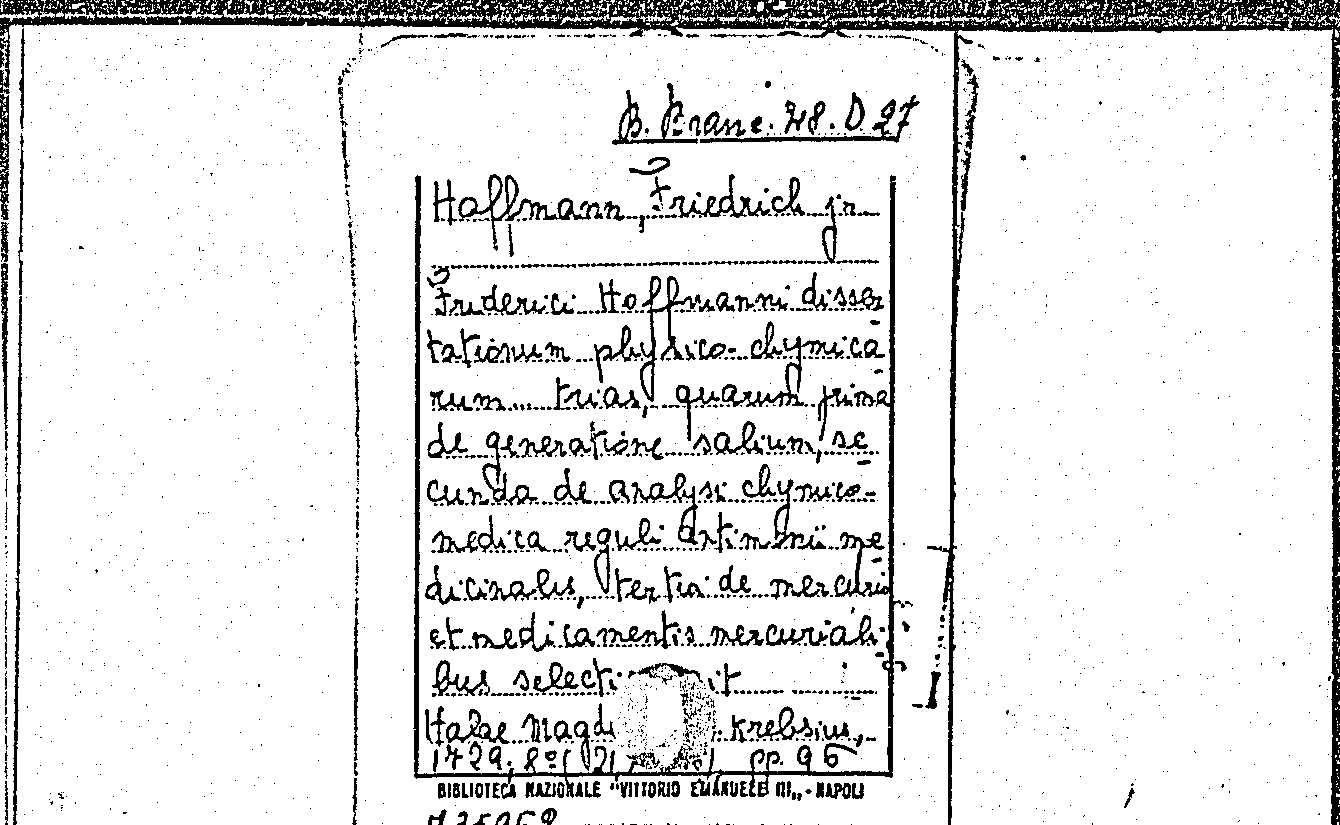 B. Branc. 28. D 27
Hoffmann, Friedrich jr.
Friderici Hoffmanni disser-
tationum physico-chymica-
rum... trias, quarum prima
de generatione salium, se-
cunda de analysi chymico-
medica reguli Antimonii me-
dicinalis, tertia de mercurio
et medicamentis mercuriali-
bus selecti
Halae Magd Krebsius,
1729; 8º( 21, pp. 96
BIBLIOTECA NAZIONALE "VITTORIO EMANUELE III„ - NAPOLI